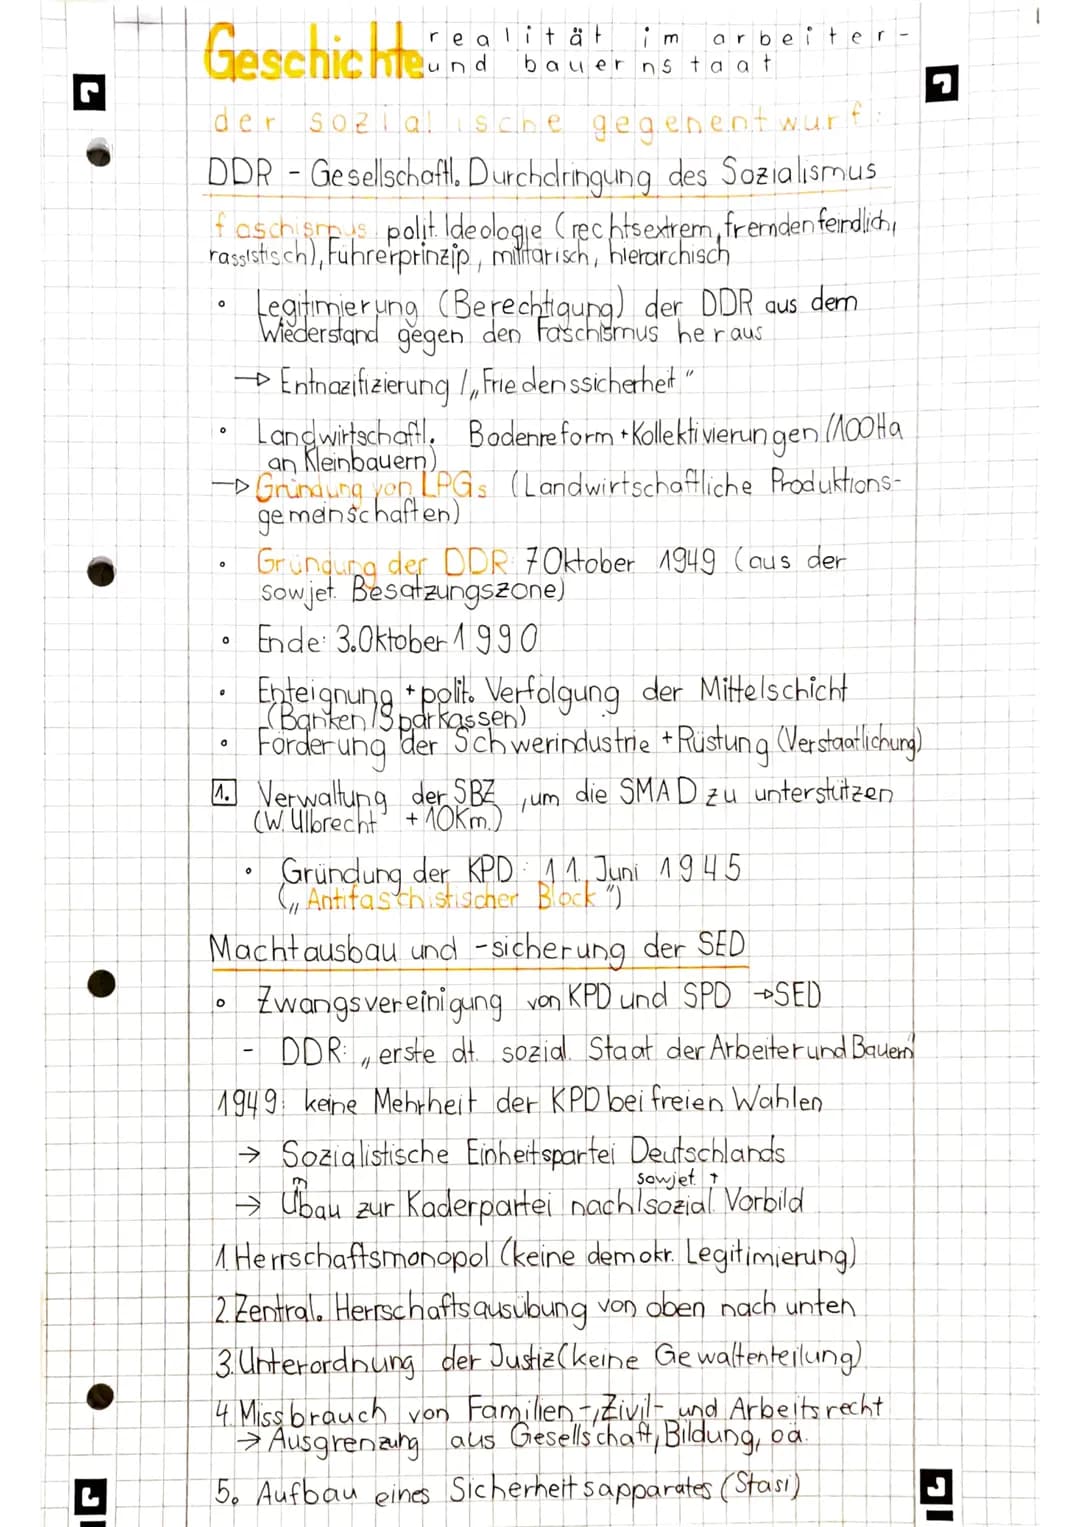 Geschichte realität im arbeiter-
und bauernstaat
der sozialistische gegenentwurf:
DDR - Gesellschaftl. Durchdringung des Sozialismus
faschismus: polit. Ideologie (rechtsextrem, fremdenfeindlich,
rassistisch), Führerprinzip, militärisch, hierarchisch
• Legitimierung (Berechtigung) der DDR aus dem
Wiederstand gegen den Faschismus heraus
→ Entnazifizierung / „Friedenssicherheit"
• Landwirtschaftl. Bodenreform + Kollektivierungen (100Ha
an Kleinbauern)
→ Gründung von LPGs (Landwirtschaftliche Produktions-
gemeinschaften)
• Gründung der DDR: 7 Oktober 1949 (aus der
sowjet. Besatzungszone)
• Ende: 3. Oktober 1990
• Enteignung + polit. Verfolgung der Mittelschicht
(Banken/Sparkassen)
• Förderung der Schwerindustrie + Rüstung (Verstaatlichung)
1. Verwaltung der SBZ, um die SMAD zu unterstützen
(W. Ulbrecht + 10Km.)
• Gründung der KPD: 11. Juni 1945
(„Antifaschistischer Block")
Machtausbau und -sicherung der SED
• Zwangsvereinigung von KPD und SPD → SED
- DDR: „erste dt. sozial. Staat der Arbeiter und Bauern"
1949: keine Mehrheit der KPD bei freien Wahlen
→ Sozialistische Einheitspartei Deutschlands
m sowjet. +
→ Übau zur Kaderpartei nach sozial. Vorbild
1. Herrschaftsmonopol (keine demokr. Legitimierung)
2. Zentral. Herrschaftsausübung von oben nach unten
3. Unterordnung der Justiz (keine Gewaltenteilung)
4. Missbrauch von Familien-, Zivil- und Arbeitsrecht
→ Ausgrenzung aus Gesellschaft, Bildung, oä.
5. Aufbau eines Sicherheitsapparates (Stasi)